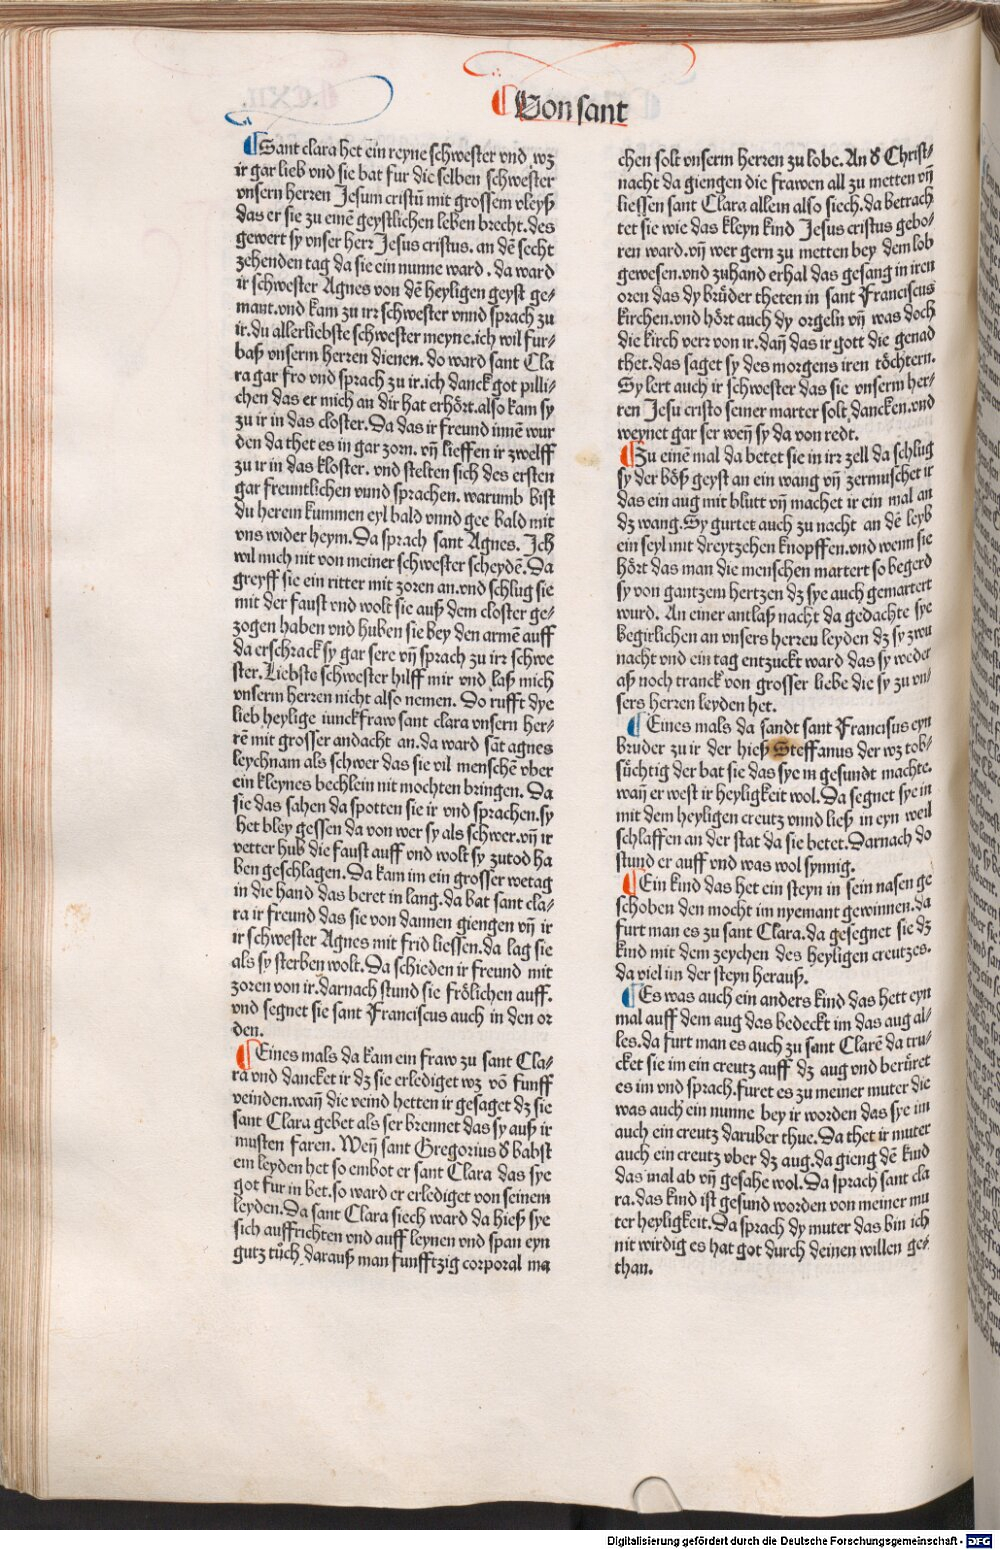 Von sant
Sant clara het ein reyne schwester vnd wz
ir gar lieb vnd sie bat fur die selben schwester
vnsern herren Jesum cristū mit grossem vleyß
das er sie zu einē geystlichen leben brecht. des
gewert sy vnser herr Jesus cristus. an dē secht
zehenden tag da sie ein nunne ward. da ward
ir schwester Agnes von dē heyligen geyst ge⸗
mant. vnd kam zu irr schwester vnnd sprach zu
ir. du allerliebste schwester meyne. ich wil fur⸗
baß vnserm herren dienen. do ward sant Cla
ra gar fro vnd sprach zu ir. ich danck got pilli⸗
chen das er mich an dir hat erhört. also kam sy
zu ir in das closter. Da das ir freund innē wur
den da thet es in gar zorn. vñ lieffen ir zwelff
zu ir in das kloster. vnd stelten sich des ersten
gar freuntlichen vnnd sprachen. warumb bist
du herein kummen eyl bald vnnd gee bald mit
vns wider heym. Da sprach sant Agnes. Ich
wil mich nit von meiner schwester scheydē. Da
greyff sie ein ritter mit zoren an. vnd schlug sie
mit der faust vnd wolt sie auß dem closter ge⸗
zogen haben vnd huben sie bey den armē auff
da erschrack sy gar sere vñ sprach zu irr schwe
ster. Liebste schwester hilff mir vnd laß mich
vnserm herren nicht also nemen. Do rufft dye
lieb heylige iunckfraw sant clara vnsern her⸗
rē mit grosser andacht an. da ward sāt agnes
leychnam als schwer das sie vil menschē vber
ein kleynes bechlein nit mochten bringen. Da
sie das sahen da spotten sie ir vnd sprachen. sy
het bley gessen da von wer sy als schwer. vñ ir
vetter hub die faust auff vnd wolt sy zutod ha
ben geschlagen. Da kam im ein grosser wetag
in die hand das beret in lang. da bat sant cla⸗
ra ir freund das sie von dannen giengen vñ ir
ir schwester Agnes mit frid liessen. da lag sie
als sy sterben wolt. Da schieden ir freund mit
zoren von ir. darnach stund sie frölichen auff.
vnd segnet sie sant Franciscus auch in den or
den.
Eines mals da kam ein fraw zu sant Cla⸗
ra vnd dancket ir dz sie erlediget wz vō funff
veinden. wañ die veind hetten ir gesaget dz sie
sant Clara gebet als ser brennet das sy auß ir
musten faren. Weñ sant Gregorius d babst
ein leyden het so embot er sant Clara das sye
got fur in bet. so ward er erlediget von seinem
leyden. Da sant Clara siech ward da hieß sye
sich auffrichten vnd auff leynen vnd span eyn
gutz tuͦch darauß man funfftzig corporal ma
chen solt vnserm herren zu lobe. An d Christ⸗
nacht da giengen die frawen all zu metten vñ
liessen sant Clara allein also siech. da betrach
tet sie wie das kleyn kind Jesus cristus gebo⸗
ren ward. vñ wer gern zu metten bey dem lob
gewesen. vnd zuhand erhal das gesang in iren
oren das dy brüder theten in sant Franciscus
kirchen. vnd hört auch dy orgeln vñ was doch
die kirch verr von ir. dañ das ir gott die genad
thet. das saget sy des morgens iren töchtern.
Sy lert auch ir schwester das sie vnserm her⸗
ren Jesu cristo seiner marter solt dancken. vnd
weynet gar ser weñ sy da von redt.
Zu einē mal da betet sie in irr zell da schlug
sy der böß geyst an ein wang vñ zermuschet ir
das ein aug mit blutt vñ machet ir ein mal an
dz wang. Sy gurtet auch zu nacht an dē leyb
ein seyl mit dreytzehen knopffen. vnd wenn sie
hört das man die menschen martert so begerd
sy von gantzem hertzen dz sye auch gemartert
wurd. An einer antlaß nacht da gedachte sye
begirlichen an vnsers herren leyden dz sy zwu
nacht vnd ein tag entzuckt ward das sy weder
aß noch tranck von grosser liebe die sy zu vn⸗
sers herren leyden het.
Eines mals da sandt sant Franciscus eyn
bruder zu ir der hieß Steffanus der wz tob⸗
süchtig der bat sie das sye in gesundt machte.
wañ er west ir heyligkeit wol. Da segnet sye in
mit dem heyligen creutz vnnd ließ in eyn weil
schlaffen an der stat da sie betet. Darnach do
stund er auff vnd was wol synnig.
Ein kind das het ein steyn in sein nasen ge
schoben den mocht im nyemant gewinnen. da
furt man es zu sant Clara. da gesegnet sie dz
kind mit dem zeychen des heyligen creutzes.
da viel im der steyn herauß.
Es was auch ein anders kind das hett eyn
mal auff dem aug das bedeckt im das aug al⸗
les. da furt man es auch zu sant Clarē da tru⸗
cket sie im ein creutz auff dz aug vnd berüret
es im vnd sprach. furet es zu meiner muter die
was auch ein nunne bey ir worden das sye im
auch ein creutz daruber thue. Da thet ir muter
auch ein creutz vber dz aug. da gieng dē kind
das mal ab vñ gesahe wol. Da sprach sant cla
ra. das kind ist gesund worden von meiner mu
ter heyligkeit. Da sprach dy muter das bin ich
nit wirdig es hat got durch deinen willen ge⸗
than.
Digitalisierung gefördert durch die Deutsche Forschungsgemeinschaft - DFG